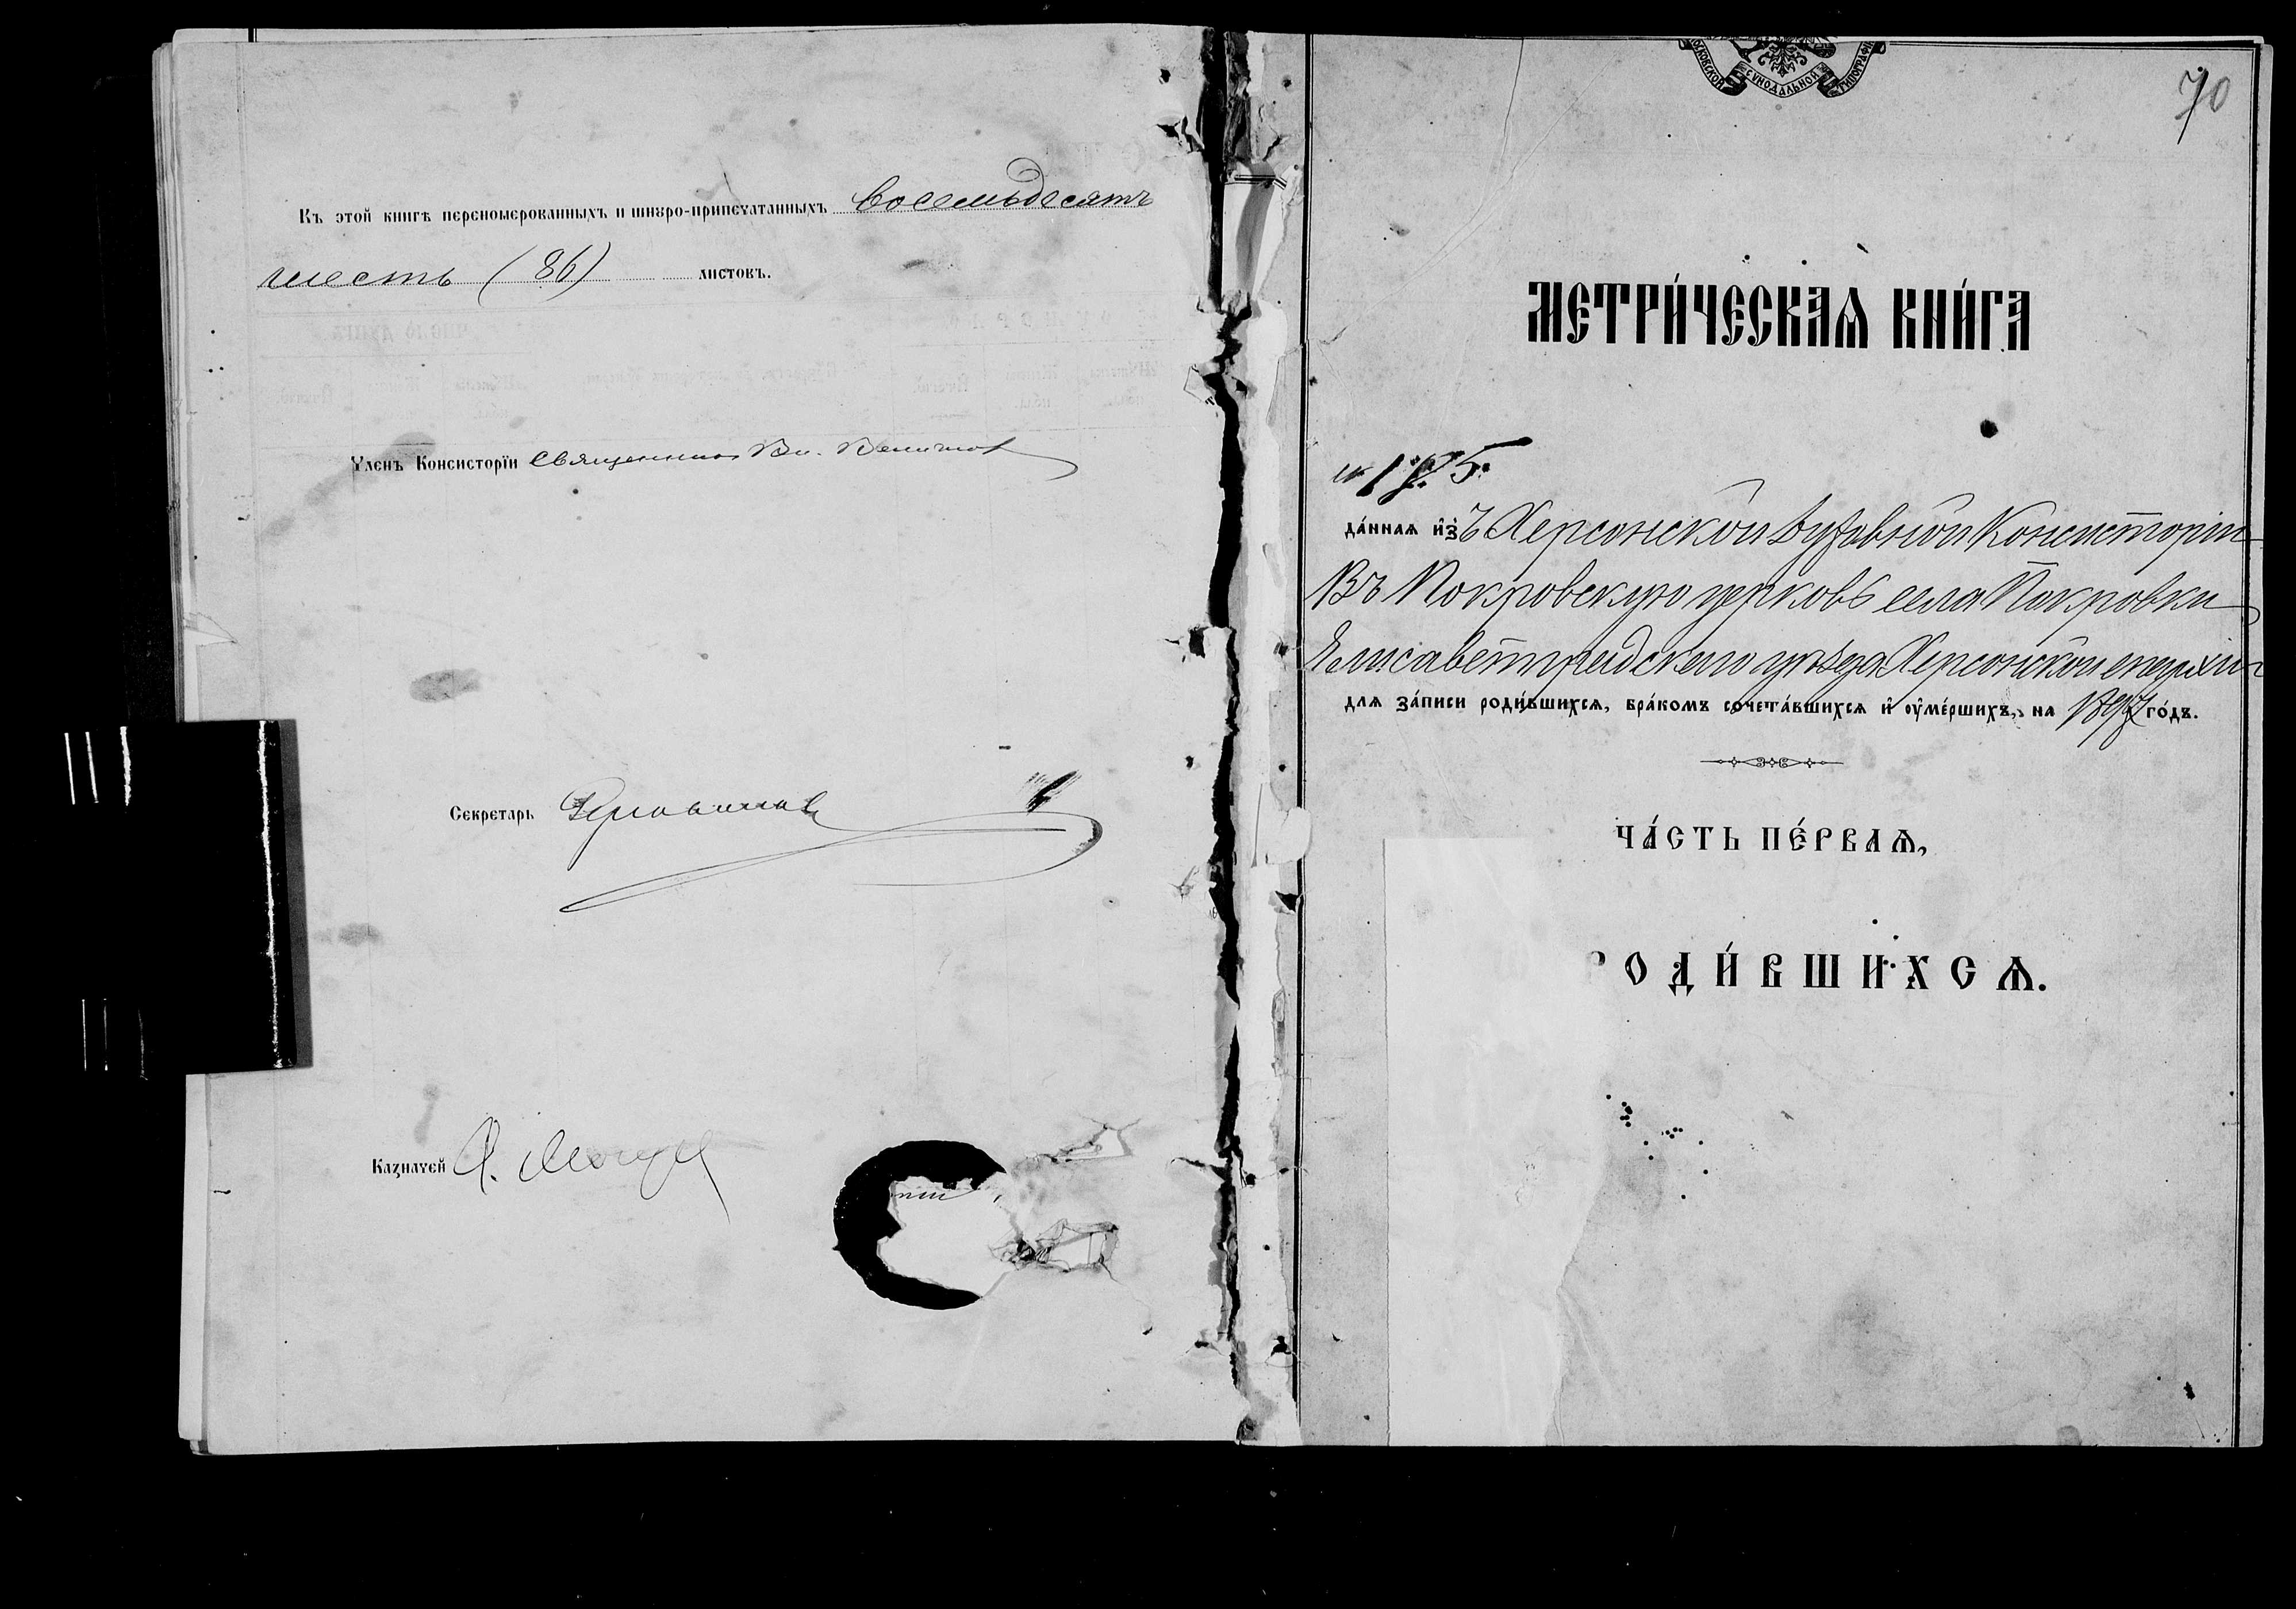 Къ этой книгѣ перенумерованныхъ и шнуро-припечатанныхъ восемьдесятъ
шесть (86) листовъ.
Членъ Консисторіи Священникъ Вл.
Секретарь
Казначей
МОСКОВСКОЙ СѴНОДАЛЬНОЙ ТИПОГРАФІ
70
МЕТРИ́ЧЕСКАѦ КНИ́ГА
да́ннаѧ и҆зъ Херсонской Духовной Консисторіи
Въ Покровскую церковь села Покровки
Елисаветградскаго уѣзда Херсонской епархіи
длѧ за́писи роди́вшихсѧ, бра́комъ сочета́вшихсѧ и҆ ᲂу҆ме́ршихъ, на 1897 го́дъ.
ЧА́СТЬ ПЕ́РВАѦ,
РОДИ́ВШИХСѦ.